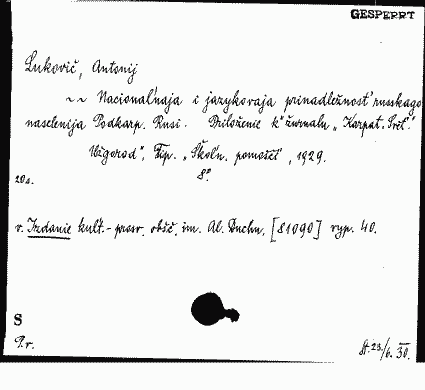 GESPERRT
Lukovič, Antonij
~ ~ Nacional'naja i jazykovaja prinadležnost' russkago
naselenija Podkarp. Rusi. Priloženie k" žurnalu „Karpat. Svět."
Užgorod", Tip. „Škol'n. pomošči", 1929.
8°
20 s.
v. Izdanie kul't.-prosv. obšč. im. Al. Duchn. [81090] vyp. 40.
S
9.r.
23/6. 30.